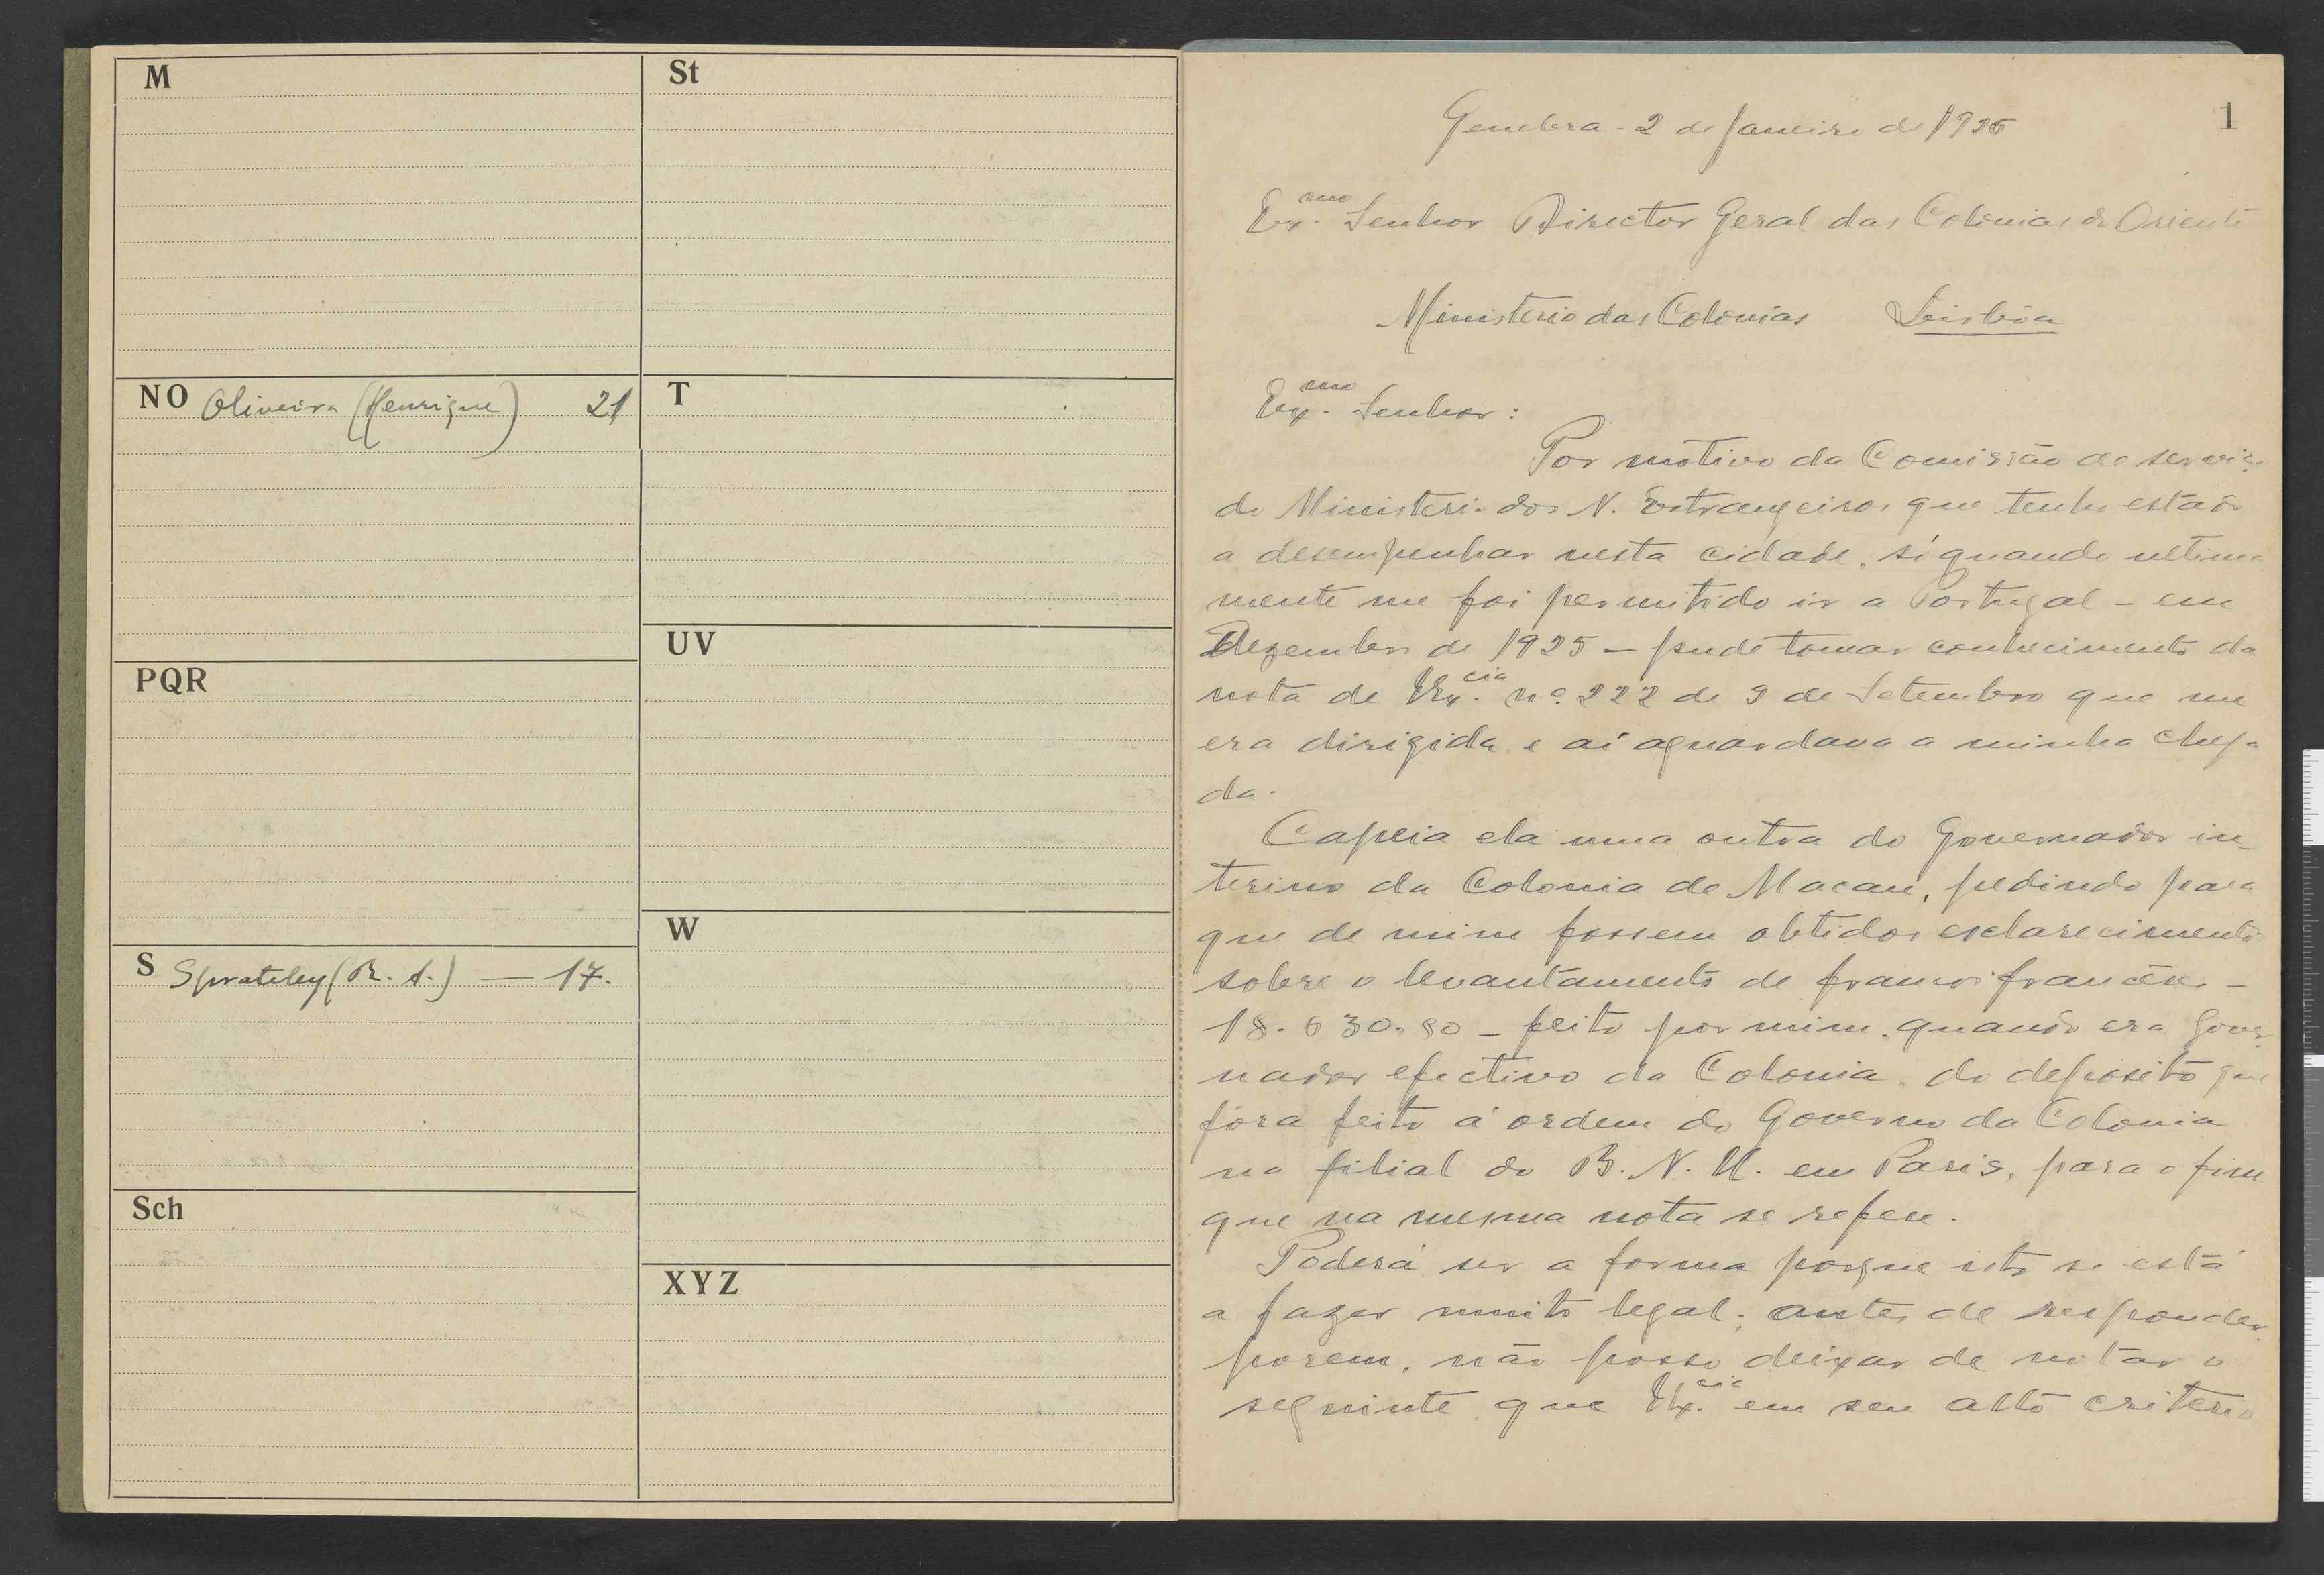 M
NO Oliveira (Henrique) 21
PQR
S Sprateley (R. A.) — 17.
Sch
St
T
UV
W
XYZ
1
Genebra - 2 de Janeiro de 1926
Ex.mo Senhor Director Geral das Colonias do Oriente
Ministerio das Colonias Lisbôa
Ex.mo Senhor:
Por motivo da Comissão de serviço
do Ministerio dos N. Estrangeiros que tenho estado
a desempenhar nesta cidade, só quando ultima
mente me foi permitido ir a Portugal - em
Dezembro de 1925 - pude tomar conhecimento da
nota de V. Ex.cia nº 222 de 9 de Setembro que me
era dirigida e aí aguardava a minha chega
da.
Capeia ela uma outra do Governador in_
terino da Colonia de Macau, pedindo para
que de mim fossem obtidos esclarecimentos
sobre o levantamento de francos francêses -
18.630,80 - feito por mim, quando era Gover_
nador efectivo da Colonia, do deposito que
fôra feito á ordem do Governo da Colonia
na filial do B. N. U. em Paris, para o fim
que na mesma nota se refere.
Poderá ser a forma porque isto se está
a fazer muito legal; antes de responder
porem, não posso deixar de notar o
seguinte que V. Ex.cia em seu alto criterio